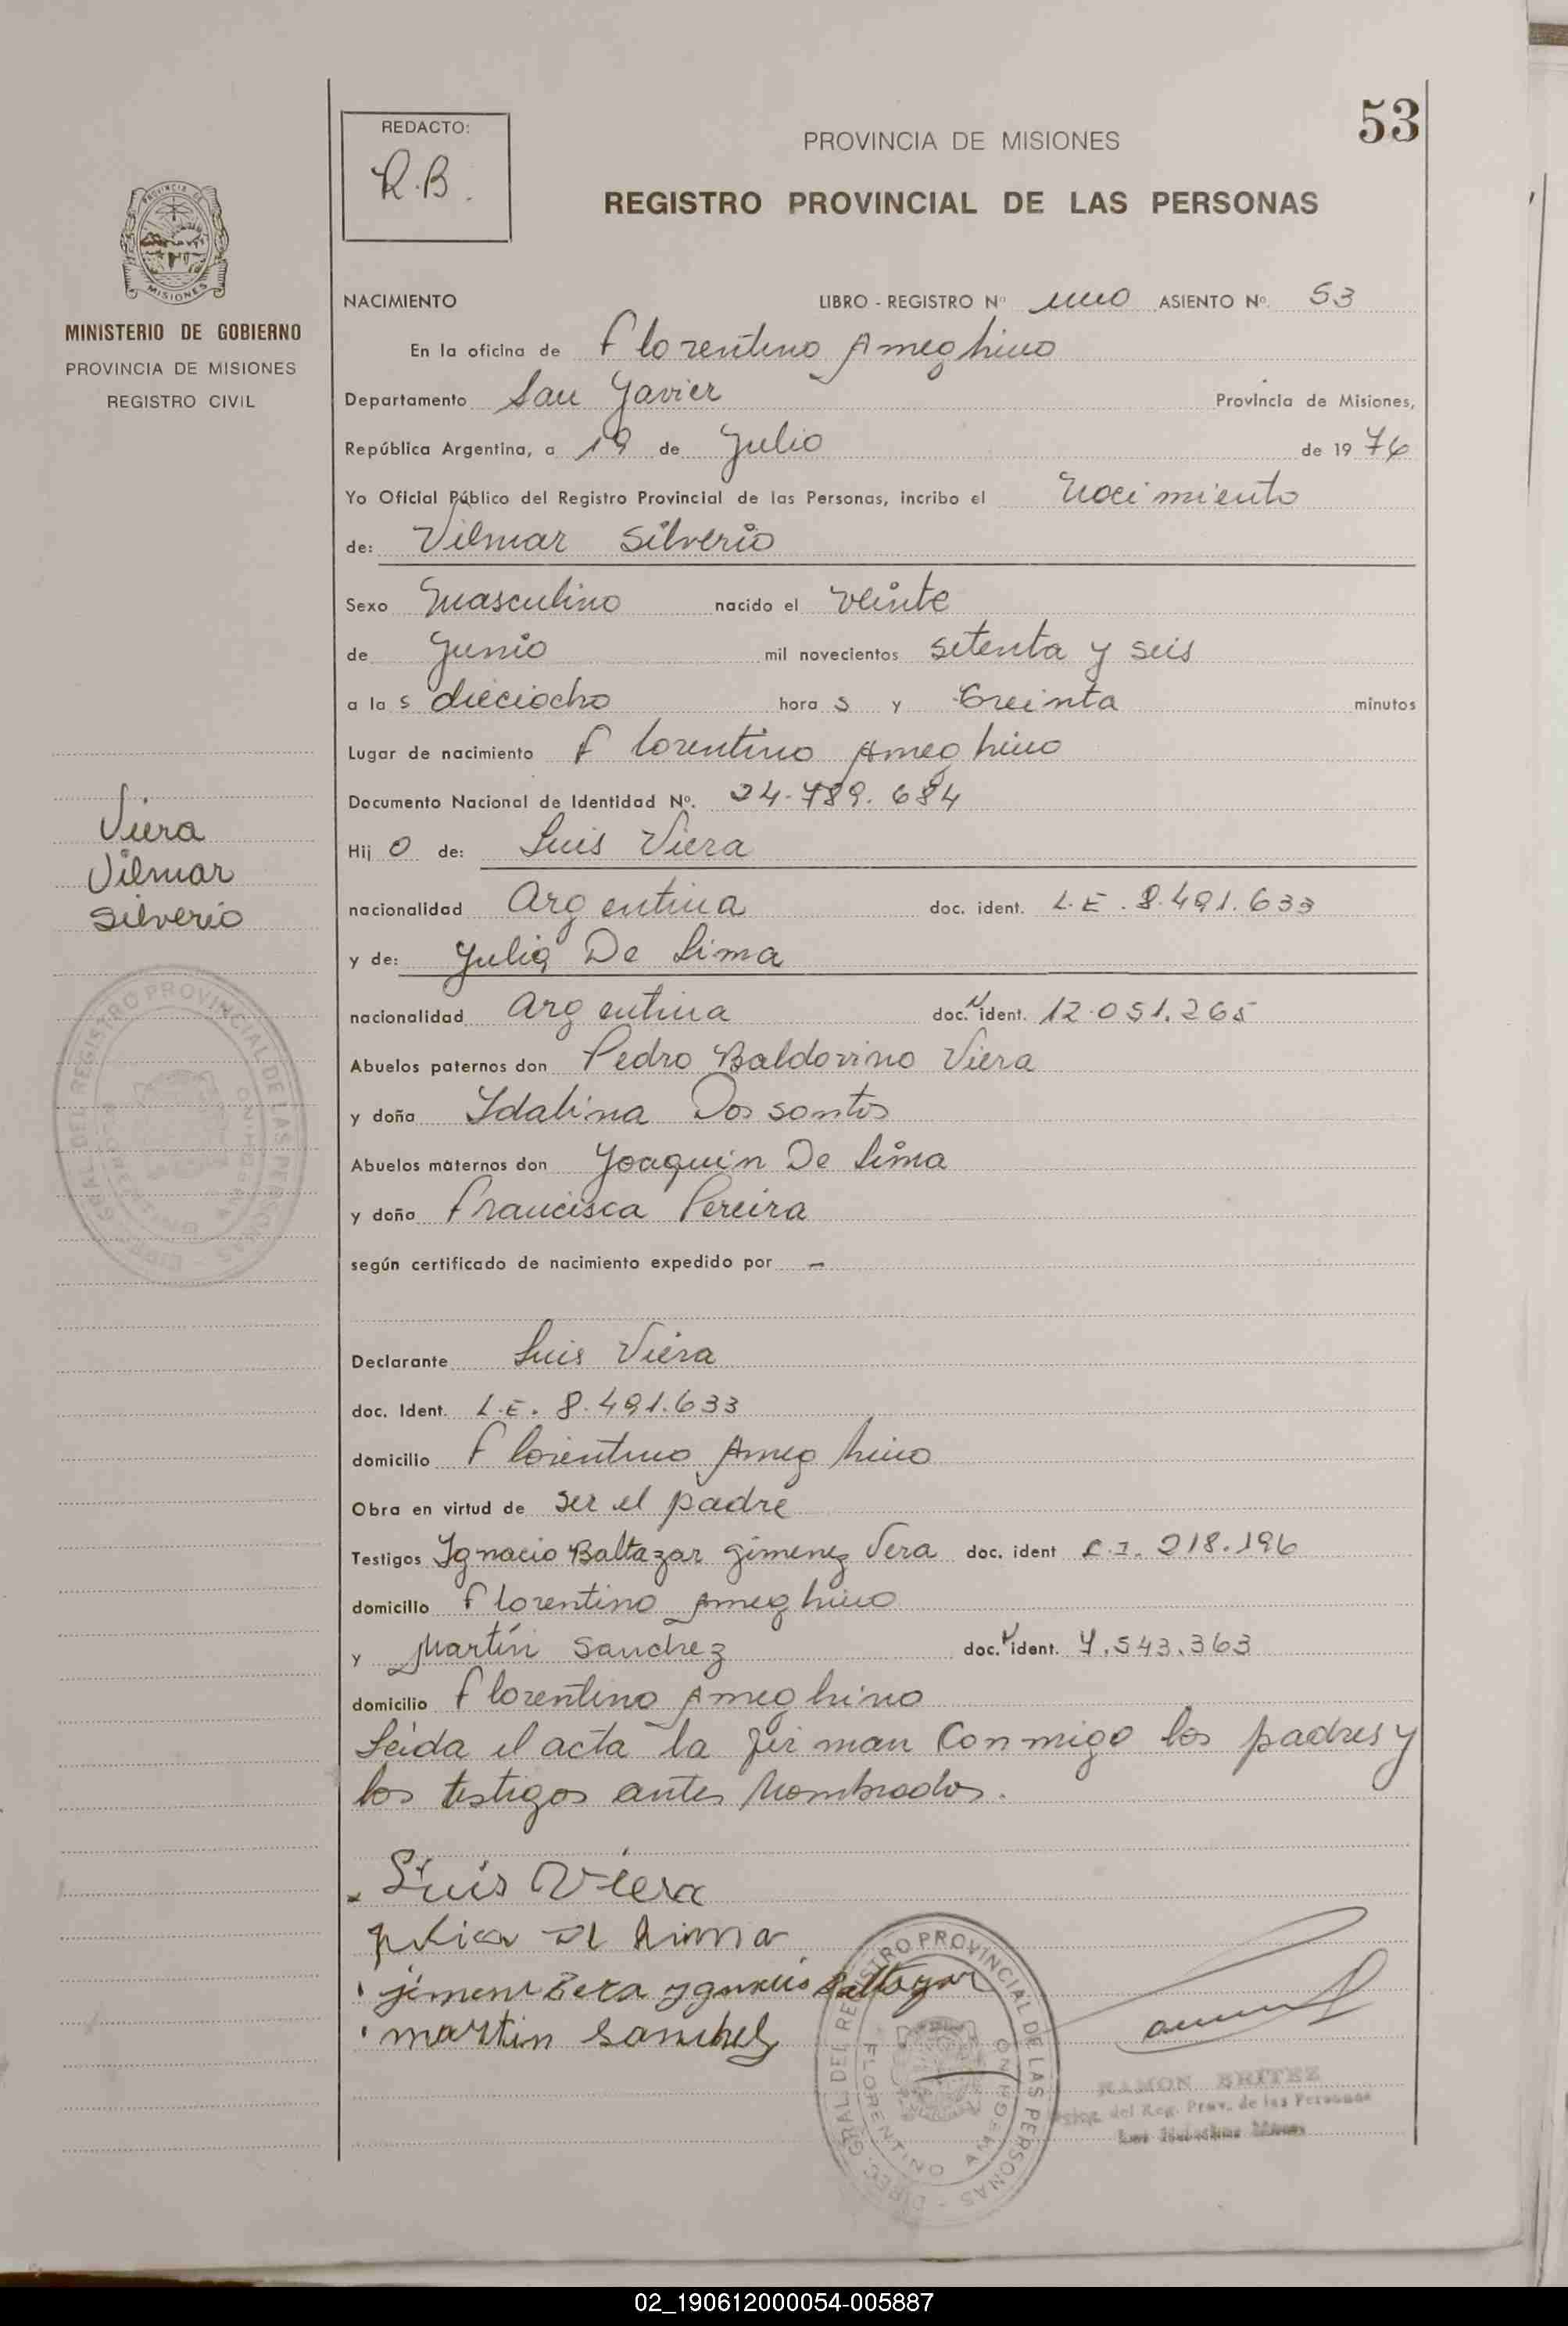 53
REDACTO:
R.B.
PROVINCIA DE MISIONES
REGISTRO PROVINCIAL DE LAS PERSONAS
MISIONES
MINISTERIO DE GOBIERNO
PROVINCIA DE MISIONES
REGISTRO CIVIL
NACIMIENTO LIBRO - REGISTRO Nº uno ASIENTO Nº 53
En la oficina de Florentino Ameghino
Departamento San Javier Provincia de Misiones,
República Argentina, a 19 de Julio de 1976
Yo Oficial Público del Registro Provincial de las Personas, incribo el nacimiento
de: Vilmar Silverio
Sexo Masculino nacido el veinte
de Junio mil novecientos setenta y seis
a la s dieciocho hora s y treinta minutos
Lugar de nacimiento Florentino Ameghino
Documento Nacional de Identidad Nº. 24.789.684
Hij o de: Luis Viera
nacionalidad Argentina doc. ident. L.E. 8.491.633
y de: Julia De Lima
nacionalidad Argentina doc. ident. 12.051.265
Abuelos paternos don Pedro Baldovino Viera
y doña Idalina Dos santos
Abuelos maternos don Joaquin De Lima
y doña Francisca Pereira
según certificado de nacimiento expedido por —
Declarante Luis Viera
doc. Ident. L.E. 8.491.633
domicilio Florentino Ameghino
Obra en virtud de ser el padre
Testigos Ignacio Baltazar Gimenez Vera doc. ident C.I. 218.196
domicilio Florentino Ameghino
y Martín Sanchez doc. ident. 7.543.363
domicilio Florentino Ameghino
Leida el acta la firman conmigo los padres y
los testigos antes nombrados.
Viera
Vilmar
Silverio
Luis Viera
Julia de Lima
Baltazar
martin Sanchez
DIREC. GRAL DEL REGISTRO PROVINCIAL DE LAS PERSONAS
FLORENTINO AMEGHINO
RAMON BRITEZ
del Reg. Prov. de las Personas
02_190612000054-005887